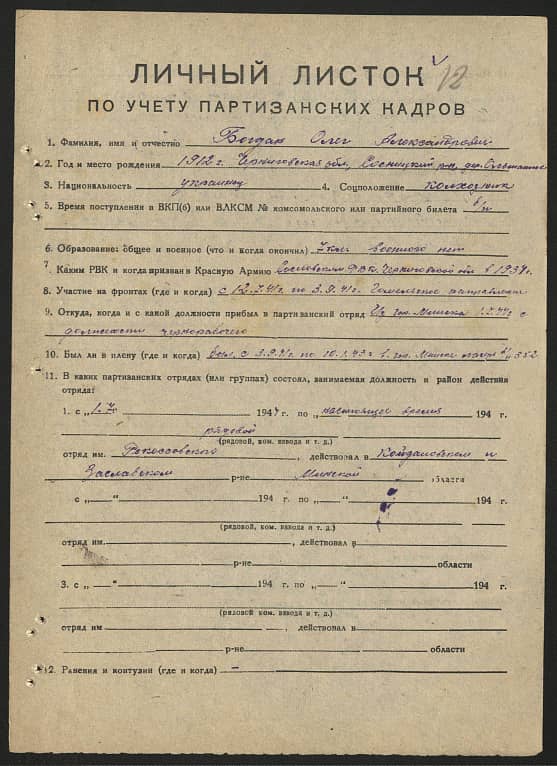 12
ЛИЧНЫЙ ЛИСТОК
ПО УЧЕТУ ПАРТИЗАНСКИХ КАДРОВ
1. Фамилия, имя и отчество Богдан Олег Александрович
2. Год и место рождения 1912 г. Черниговская обл, Сосницкий р-н, дер.
3. Национальность украинец 4. Соцположение колхозник
5. Время поступления в ВКП(б) или ВЛКСМ № комсомольского или партийного билета б/п
6. Образование: общее и военное (что и когда окончил) 7 кл. военного нет
7. Каким РВК и когда призван в Красную Армию РВК. Черниговской обл в 1937г.
8. Участие на фронтах (где и когда) с 12.7.41г по 3.9.41г. Гомельское направление
9. Откуда, когда и с какой должности прибыл в партизанский отряд Из гор. Минска с
должности чернорабочего
10. Был ли в плену (где и когда) был, с 3.9.41г по 10.1.43г в гор. Минске лагерь № 352
11. В каких партизанских отрядах (или группах) состоял, занимаемая должность и район действия
отряда:
1. с „1.7 194 г. по „настоящее время 194 г.
рядовой
(рядовой, ком. взвода и т. д.)
отряд им. Рокоссовского, действовал в Койдановском и
Заславском р-не Минской области
с „—“ 194 г. по „—“ 194 г.
(рядовой, ком. взвода и т. д.)
отряд им. , действовал в
р-не области
3. с „—“ 194 г. по „—“ 194 г.
(рядовой ком. взвода и т. д.)
отряд им. , действовал в
р-не области
12. Ранения и контузии (где и когда) —